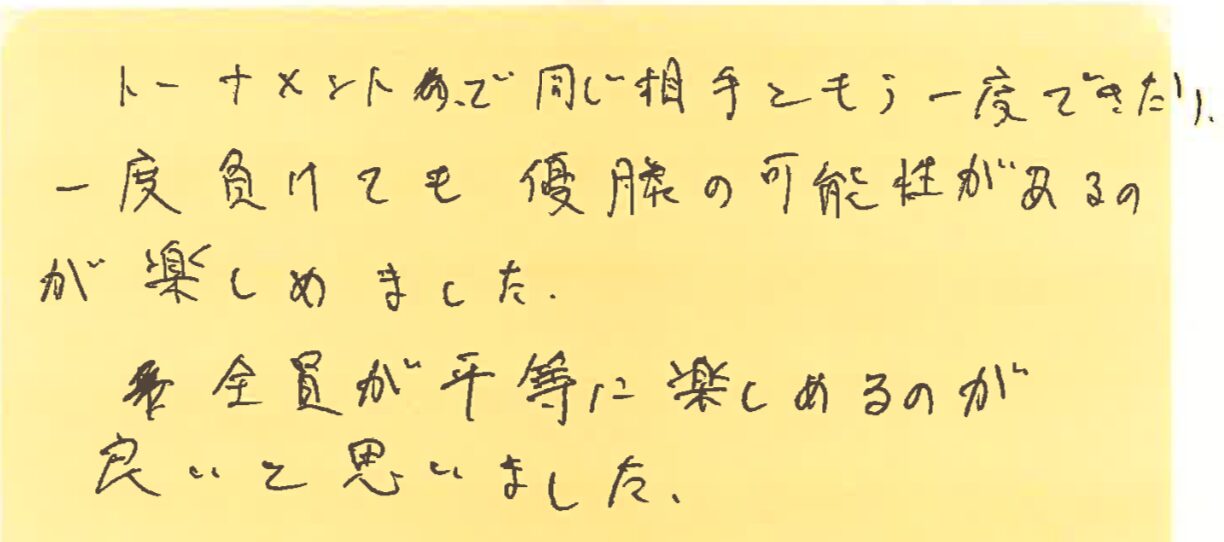 トーナメントで同じ相手ともう一度できたり、
一度負けても優勝の可能性があるの
が楽しめました.
全員が平等に楽しめるのが
良いと思いました、